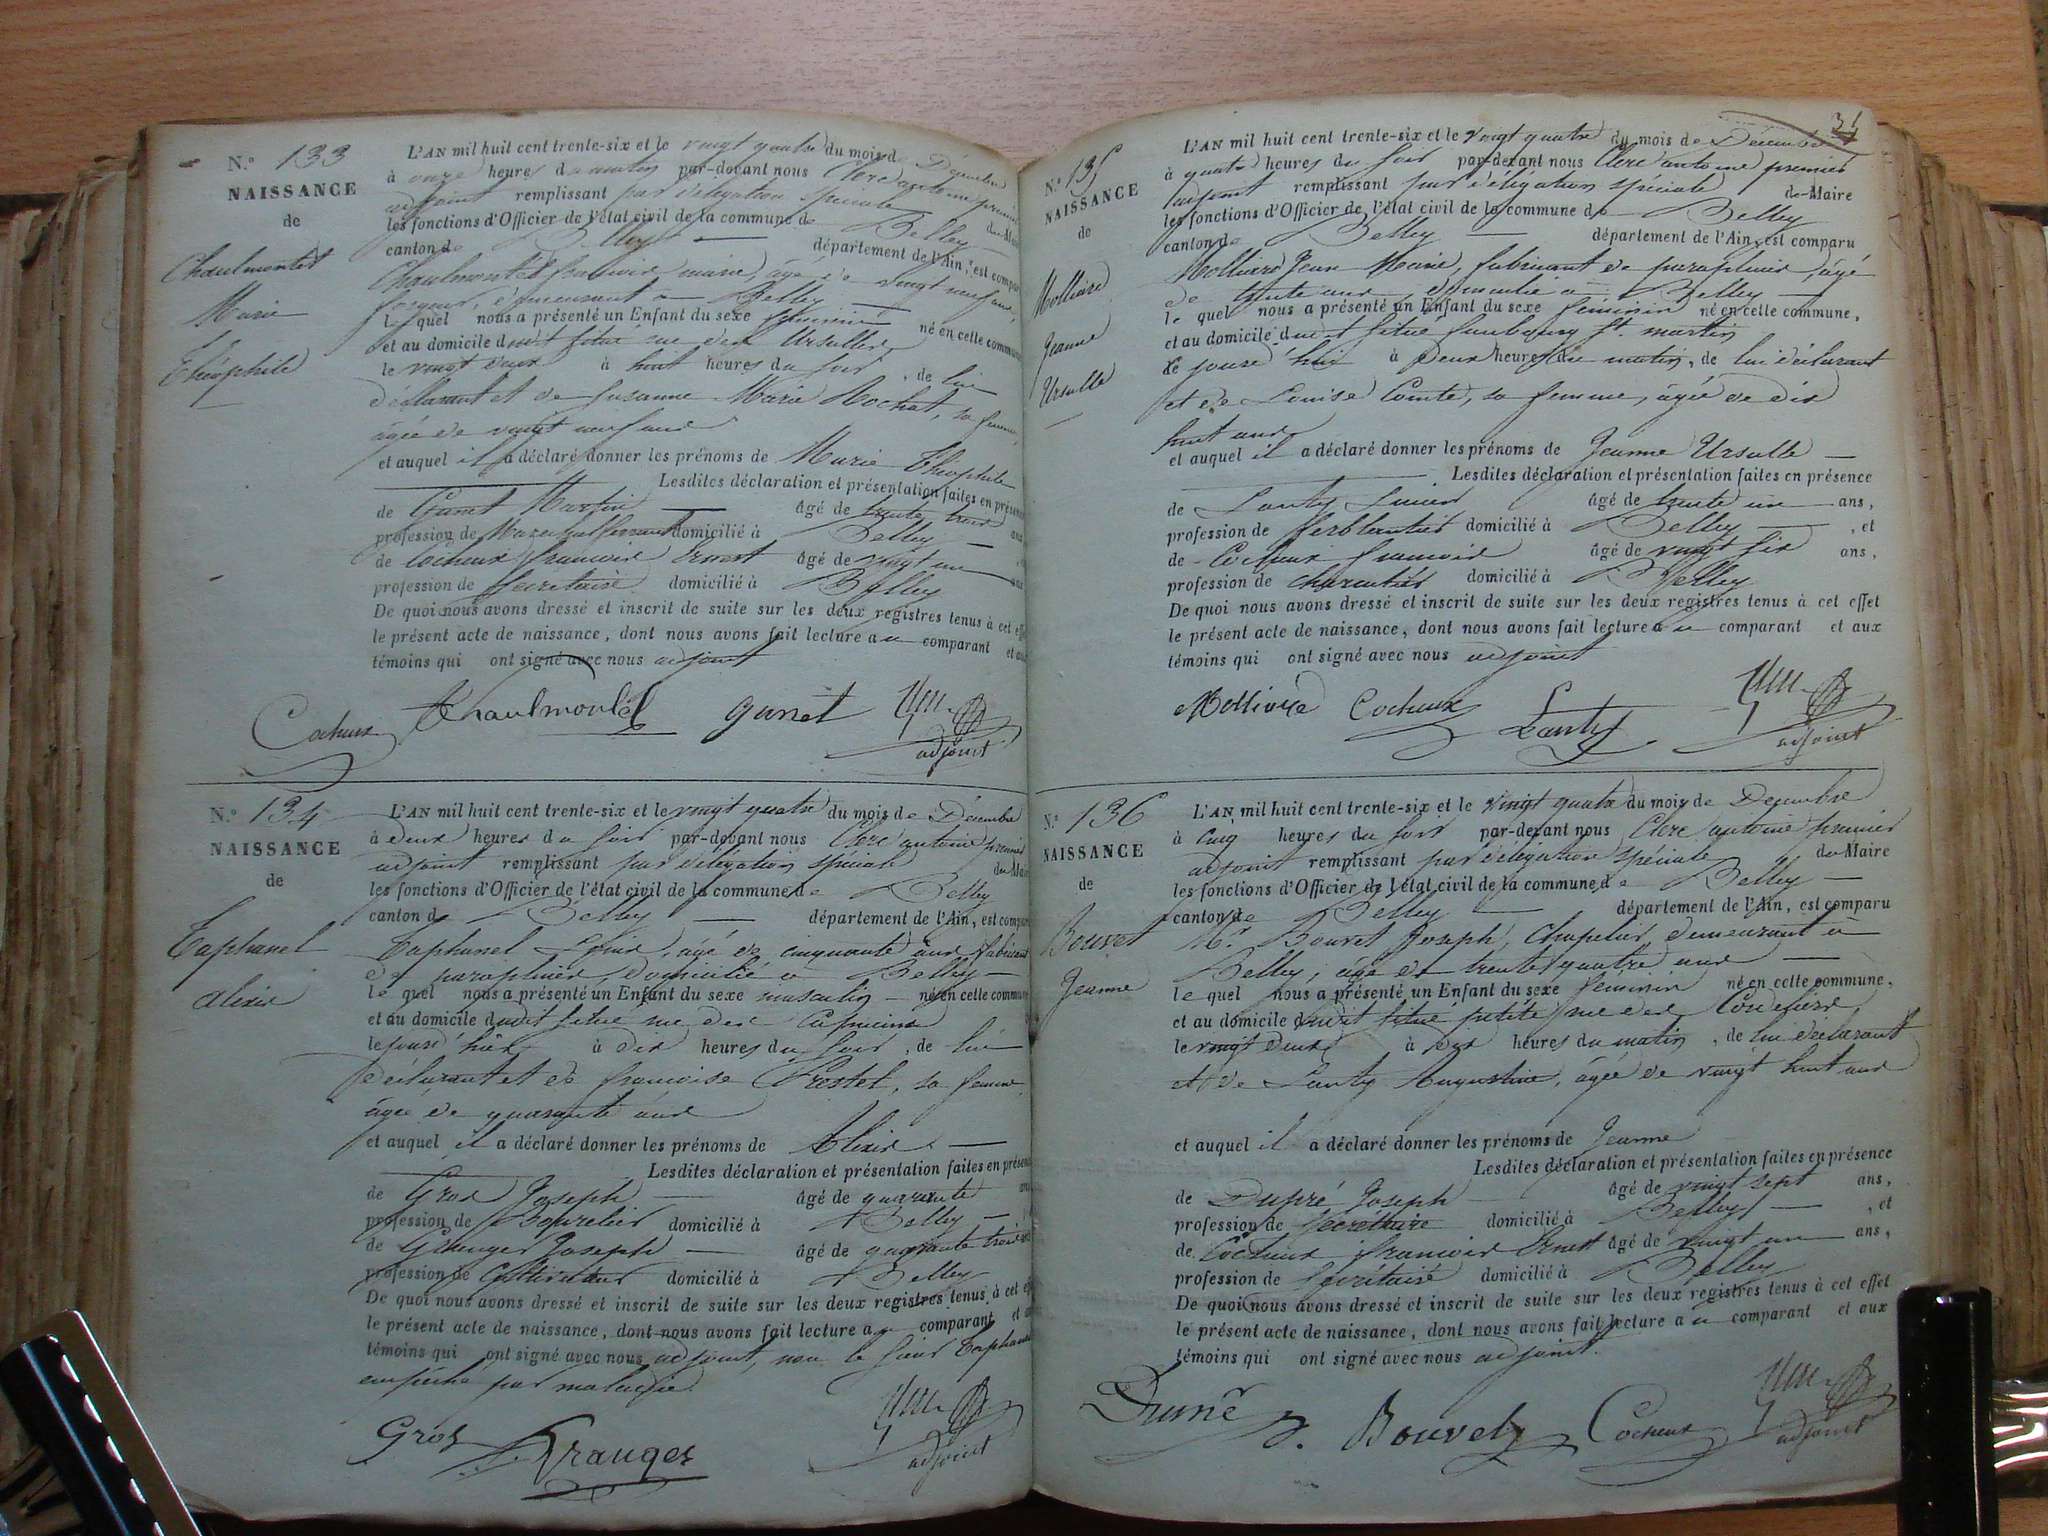 N.º 133
NAISSANCE
de
Chaulmontet
Marie
Théophile
L'AN mil huit cent trente-six et le vingt quatre du mois de Décembre
à onze heures du matin par-devant nous Clerc antoine premier
adjoint remplissant par délégation spéciale du Maire
les fonctions d'Officier de l'état civil de la commune de Belley
canton de Belley département de l'Ain, est comparu
Chaulmontet françois marie, âgé de vingt neuf ans,
demeurant à Belley
le quel nous a présenté un Enfant du sexe féminin né en cette commune
et au domicile dudit situé rue des Ursules
le vingt deux à huit heures du soir, de lui
déclarant et de Susanne Marie Rochat, sa femme,
âgée de vingt neuf ans
et auquel il a déclaré donner les prénoms de Marie Théophile
Lesdites déclaration et présentation faites en présence
de Garret Martin âgé de trente trois ans
profession de Maréchal ferrant domicilié à Belley
de Cocheux françois Ernest âgé de vingt un ans
profession de Secrétaire domicilié à Belley
De quoi nous avons dressé et inscrit de suite sur les deux registres tenus à cet effet
le présent acte de naissance, dont nous avons fait lecture au comparant et aux
témoins qui ont signé avec nous adjoint
Cocheux Chaulmontet garret
adjoint
N.º 134
NAISSANCE
de
Taphanel
alexis
L'AN mil huit cent trente-six et le vingt quatre du mois de Décembre
à deux heures du soir par-devant nous Clerc antoine premier
adjoint remplissant par délégation spéciale du Maire
les fonctions d'Officier de l'état civil de la commune de Belley
canton de Belley département de l'Ain, est comparu
Taphanel Louis, âgé de cinquante ans fabricant
de parapluies, domicilié à Belley
le quel nous a présenté un Enfant du sexe masculin né en cette commune
et au domicile dudit situé rue des Capucins
le jour d'hier à dix heures du soir, de lui
déclarant et de françoise Prestel, sa femme
âgée de quarante ans
et auquel il a déclaré donner les prénoms de Alexis
Lesdites déclaration et présentation faites en présence
de Gros Joseph âgé de quarante ans
profession de Bourelier domicilié à Belley
de Granger Joseph âgé de quarante trois ans
profession de Cultivateur domicilié à Belley
De quoi nous avons dressé et inscrit de suite sur les deux registres tenus à cet effet
le présent acte de naissance, dont nous avons fait lecture au comparant et aux
témoins qui ont signé avec nous adjoint, non le sieur Taphanel
empêché par maladie.
Gros Granger
adjoint
31
N.º 135
NAISSANCE
de
Molliard
Jeanne
Ursulle
L'AN mil huit cent trente-six et le vingt quatre du mois de Décembre
à quatre heures du soir par-devant nous Clerc antoine premier
adjoint remplissant par délégation spéciale du Maire
les fonctions d'Officier de l'état civil de la commune de Belley
canton de Belley département de l'Ain, est comparu
Molliard Jean Marie, fabricant de parapluies, âgé
de trente ans domicilié à Belley
le quel nous a présenté un Enfant du sexe féminin né en cette commune,
et au domicile dudit situé faubourg St. martin
le jourd'hui à deux heures du matin, de lui déclarant
et de Louise Comte, sa femme, âgée de dix
huit ans
et auquel il a déclaré donner les prénoms de Jeanne Ursulle
Lesdites déclaration et présentation faites en présence
de Lanty Lucien âgé de trente un ans,
profession de ferblantier domicilié à Belley, et
de Cocheux françois âgé de vingt six ans,
profession de charcutier domicilié à Belley
De quoi nous avons dressé et inscrit de suite sur les deux registres tenus à cet effet
le présent acte de naissance, dont nous avons fait lecture au comparant et aux
témoins qui ont signé avec nous adjoint
Cocheux Lanty
adjoint
N.º 136
NAISSANCE
de
Bouvet
Jeanne
L'AN mil huit cent trente-six et le vingt quatre du mois de Décembre
à cinq heures du soir par-devant nous Clerc antoine premier
adjoint remplissant par délégation spéciale du Maire
les fonctions d'Officier de l'état civil de la commune de Belley
canton de Belley département de l'Ain, est comparu
Mr. Bouvet Joseph, Chapelier, demeurant à
Belley, âgé de trente quatre ans
le quel nous a présenté un Enfant du sexe féminin né en cette commune,
et au domicile dudit situé petite rue des
le vingt deux à dix heures du matin, de lui déclarant
et de Lanty Augustine, âgée de vingt huit ans
et auquel il a déclaré donner les prénoms de Jeanne
Lesdites déclaration et présentation faites en présence
de Dupré Joseph âgé de vingt sept ans,
profession de Secrétaire domicilié à Belley, et
de Cocheux françois Ernest âgé de vingt un ans,
profession de Secrétaire domicilié à Belley
De quoi nous avons dressé et inscrit de suite sur les deux registres tenus à cet effet
le présent acte de naissance, dont nous avons fait lecture au comparant et aux
témoins qui ont signé avec nous adjoint.
J. Bouvet Cocheux
adjoint